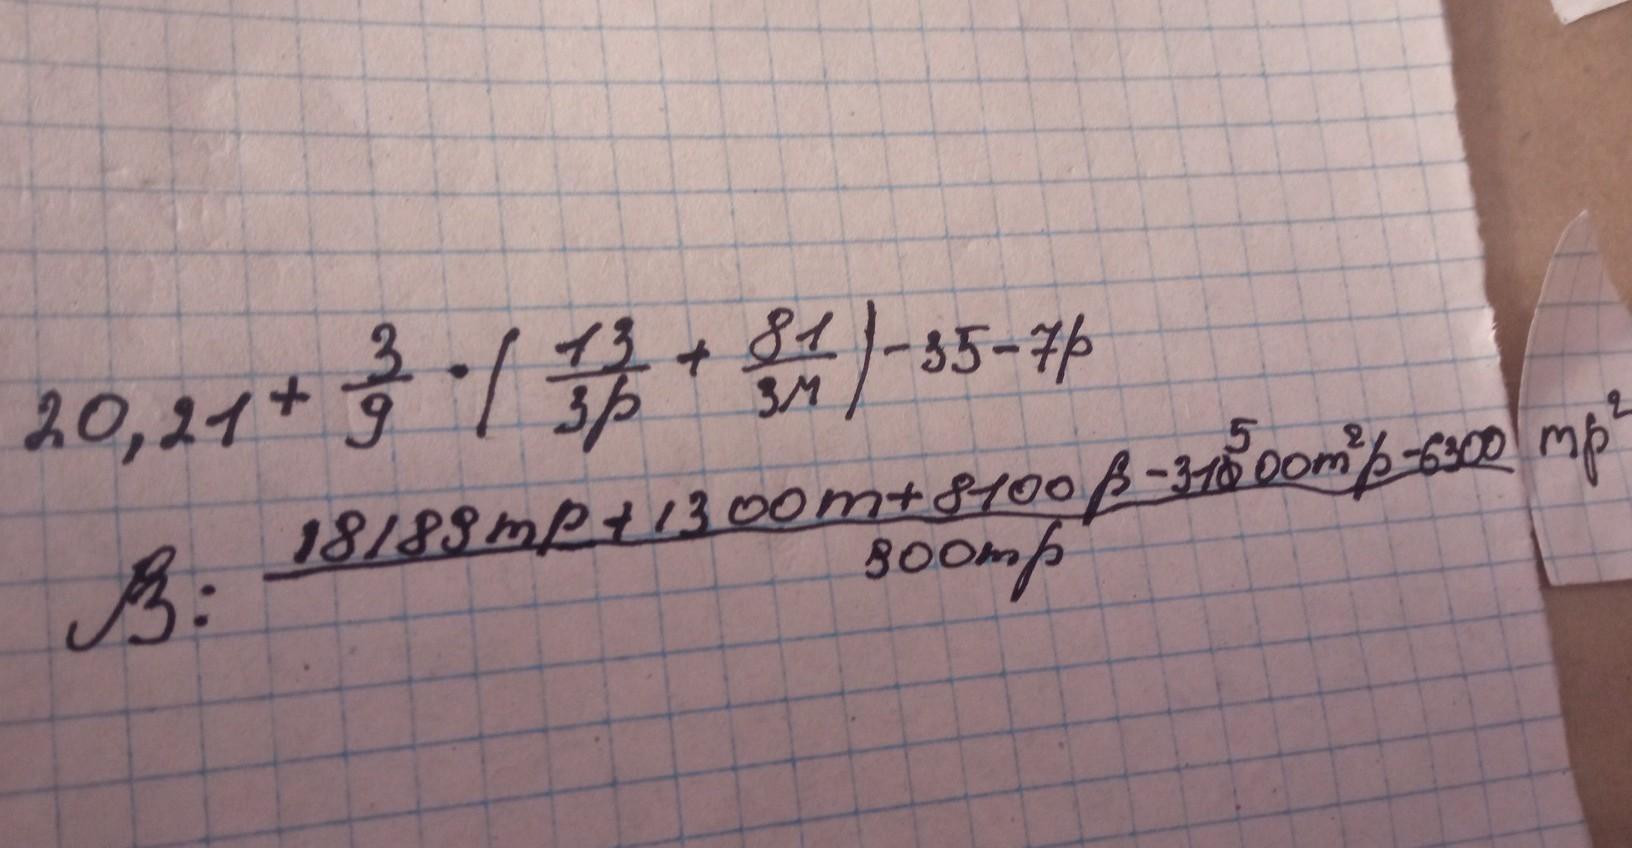 20,21 + 3/9 · ( 13/3p + 81/3м ) - 35 - 7p
В: 18189mp + 1300m + 8100p - 31500m²p - 6300 mp² / 900mp